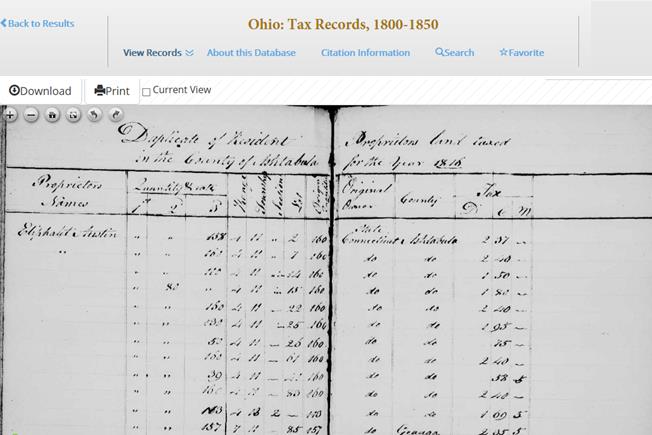 Back to Results
Ohio: Tax Records, 1800-1850
View Records About this Database Citation Information Search Favorite
Download Print Current View
Duplicate of Resident Proprietors land taxed
in the County of Ashtabula for the Year 1816
Proprietors Names Quantity & rate 1st 2 3 Range Township Section Lot Original Owner County Tax D C M
Eliphalit Austin " " 158 4 11 " 2 160 State Connecticut Ashtabula 2 37 -
" " " 160 4 11 " 7 160 do do 2 40 -
" " 4 11 14 160 do do 1 50 -
" 80 " 4 11 - 15 160 do do 1 80 -
" " 4 11 - 22 160 do do 2 40 -
" " 4 11 - 25 160 do do 1 95 -
" " 4 11 - 26 160 do do 75 -
" " 160 4 11 - 61 160 do do 2 40 -
" " 39 4 11 do do 58 5
" " do do 2 40 -
" " 113 4 13 2 - 113 do do 1 69 5
" " 157 7 11 - 85 157 do Geauga 2 35 5